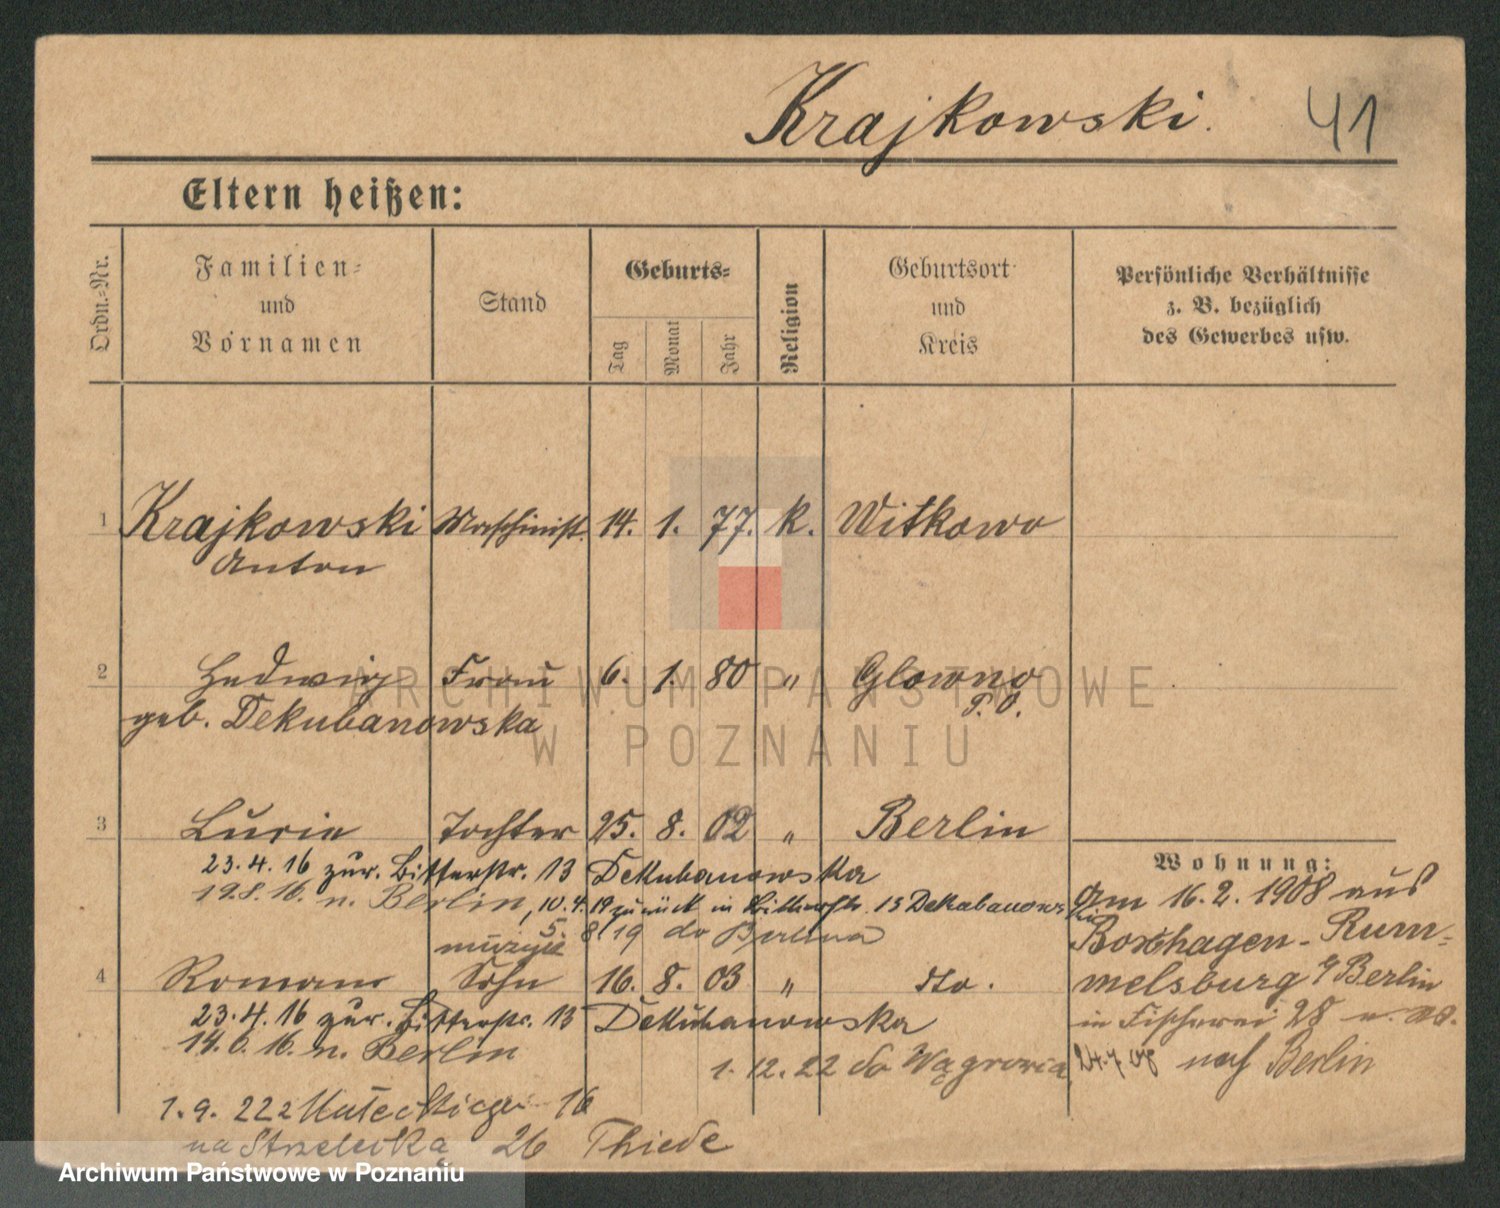 Krajkowski. 41
Eltern heißen:
Ordn.-Nr.
Familien-
und
Vornamen
Stand
Geburts-
Tag
Monat
Jahr
Religion
Geburtsort
und
Kreis
Persönliche Verhältnisse
z. B. bezüglich
des Gewerbes usw.
1 Krajkowski Maschinist. 14. 1. 77. k. Witkowo
Anton
2 Hedwig Frau 6. 1. 80 " Glowno
geb. Dekubanowska P. O.
3 Lucie Tochter 25. 8. 02 " Berlin
23.4.16 zur. Bitterstr. 13 Dekubanowska
19.8.16. n. Berlin, 10.4.19 zurück in 13 Dekubanows
5. 8 19 do Berlina
4 Roman Sohn 16. 8. 03 " dto.
23.4.16 zur. Bitterstr. 13 Dekubanowska
14.6.16. n. Berlin
1. 12. 22 do Wągrowca
1.9.22 z Małeckiego 16
na Strzelecką 26 Thiede
Wohnung:
Am 16.2.1908 aus
Boxhagen-Rum-
melsburg b/Berlin
in Fischerei 28
24.7.08 nach Berlin
ARCHIWUM PAŃSTWOWE
W POZNANIU
Archiwum Państwowe w Poznaniu